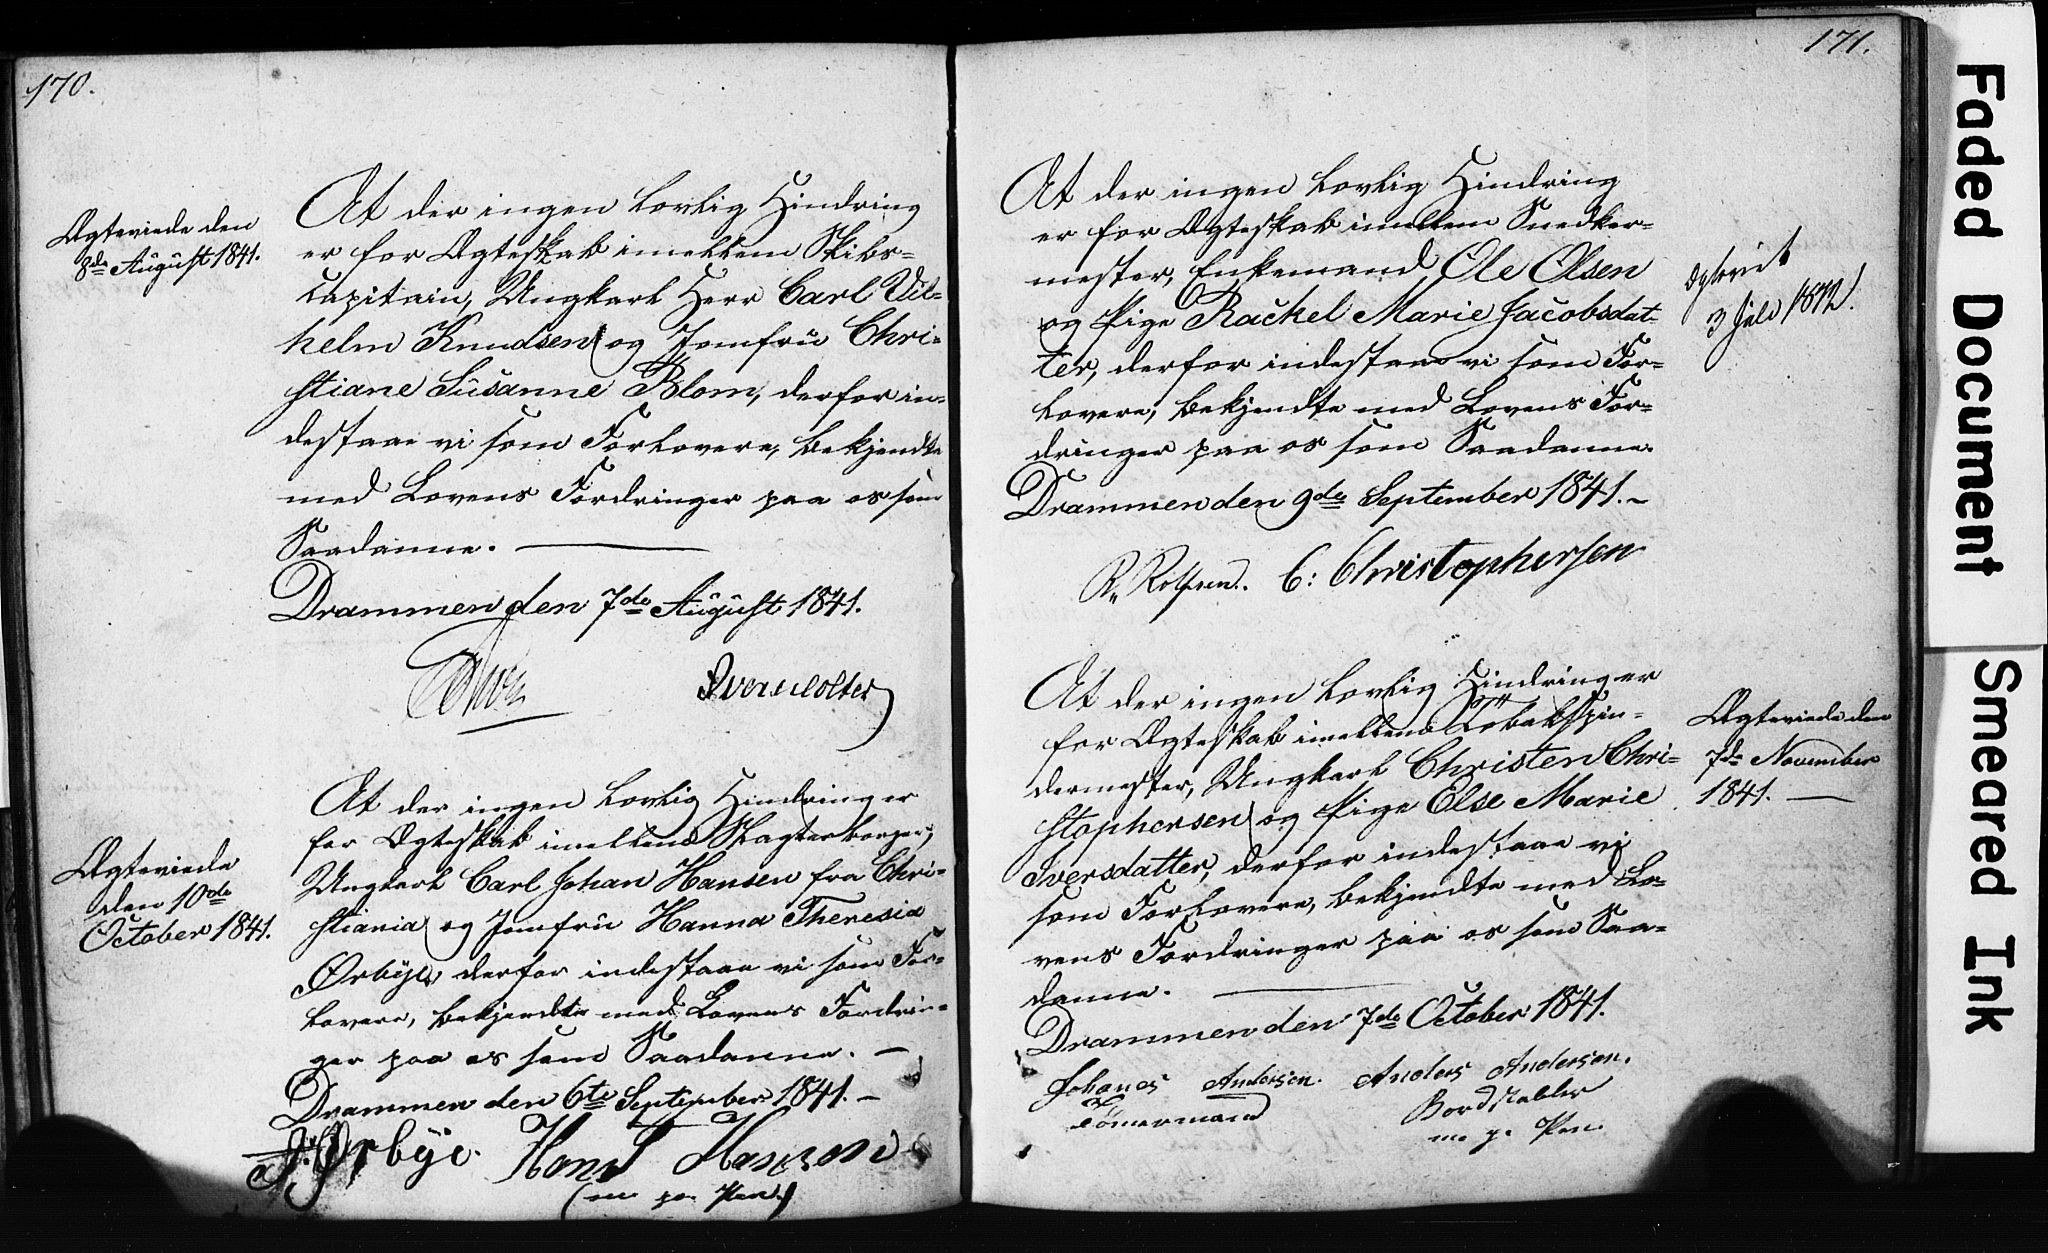 170.
Ægteviede den
8de August 1841.
At der ingen lovlig Hindring
er for Ægteskab imellem Skibs-
capitain, Ungkarl Herr Carl Vil-
helm Knudsen og Jomfru Chri-
stiane Susanne Blom, derfor in-
destaae vi som Forlovere, bekjendte
med Lovens Fordringer paa os som
Saadanne.
Drammen den 7de August 1841.
Iver Wolter
Ægteviede
den 10de
October 1841.
At der ingen lovlig Hindring er
for Ægteskab imellem Slagterborger,
Ungkarl Carl Johan Hansen fra Chri-
stiania og Jomfru Hanna Theresia
Ørbye, derfor indestaae vi som For-
lovere, bekjendte med Lovens Fordrin-
ger paa os som Saadanne.
Drammen den 6te September 1841.
Ørbÿe. Hans Hansen
(m. p. Pen.)
171.
At der ingen lovlig Hindring
er for Ægteskab imellem Snedker-
mester, Enkemand Ole Olsen
og Pige Rachel Marie Jacobsdat-
ter, derfor indestaae vi som For-
lovere, bekjendte med Lovens For-
dringer paa os som Saadanne.
Drammen den 9de September 1841.
Ægteviet
3 Juli 1842.
C: Christophersen
At der ingen lovlig Hindring er
for Ægteskab imellem Tobakspin-
dermester, Ungkarl Christen Chri-
stophersen og Pige Else Marie
Iversdatter, derfor indestaae vi
som Forlovere, bekjendte med Lo-
vens Fordringer paa os som Saa-
danne.
Drammen den 7de October 1841.
Ægteviede den
7de November
1841.
Johanes Andersen. Anders Andersen.
Tömermand Bordstabler
m. p. Pen.
Faded Document
Smeared Ink